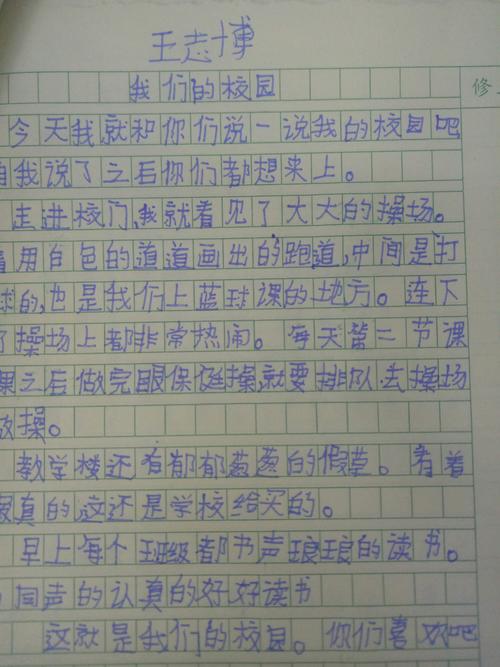 王志博
我们的校园
修
今天我就和你们说一说我的校园吧
我说了之后你们都想来上。
走进校门,我就看见了大大的操场。
用白色的道道画出的跑道,中间是打
球的,也是我们上蓝球课的地方。连下
操场上都非常热闹。每天第二节课
课之后做完眼保健操,就要排队去操场
做操。
教学楼还有郁郁葱葱的假草。看着
真的,这还是学校给买的。
早上每个班级都书声琅琅的读书。
同声的认真的好好读书
这就是我们的校园。你们喜欢吧